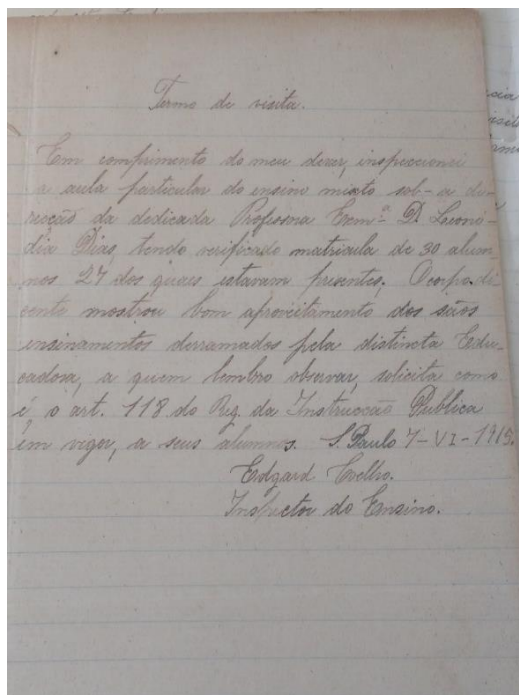 Termo de visita.
Em comprimento do meu dever, inspeccionei
a aula particular do ensino mixto sob-a di-
recção da dedicada Professora Exmª. D. Leonó-
dia Dias, tendo verificado matricula de 30 alum-
nos 27 dos quaes estavam presentes. O corpo di-
cente mostrou bom aproveitamento dos sãos
ensinamentos derramados pela distincta Edu-
cadora, a quem lembro observar, solicita como
é, o art. 118 do Reg. da Instrucção Publica
em vigor, a seus alumnos. S. Paulo 7-VI-1915.
Edgard Coelho.
Inspector do Ensino.